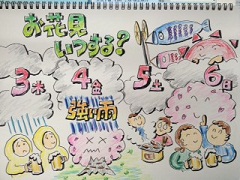 お花見
いつする?
3木 4金 5土 6日
強雨